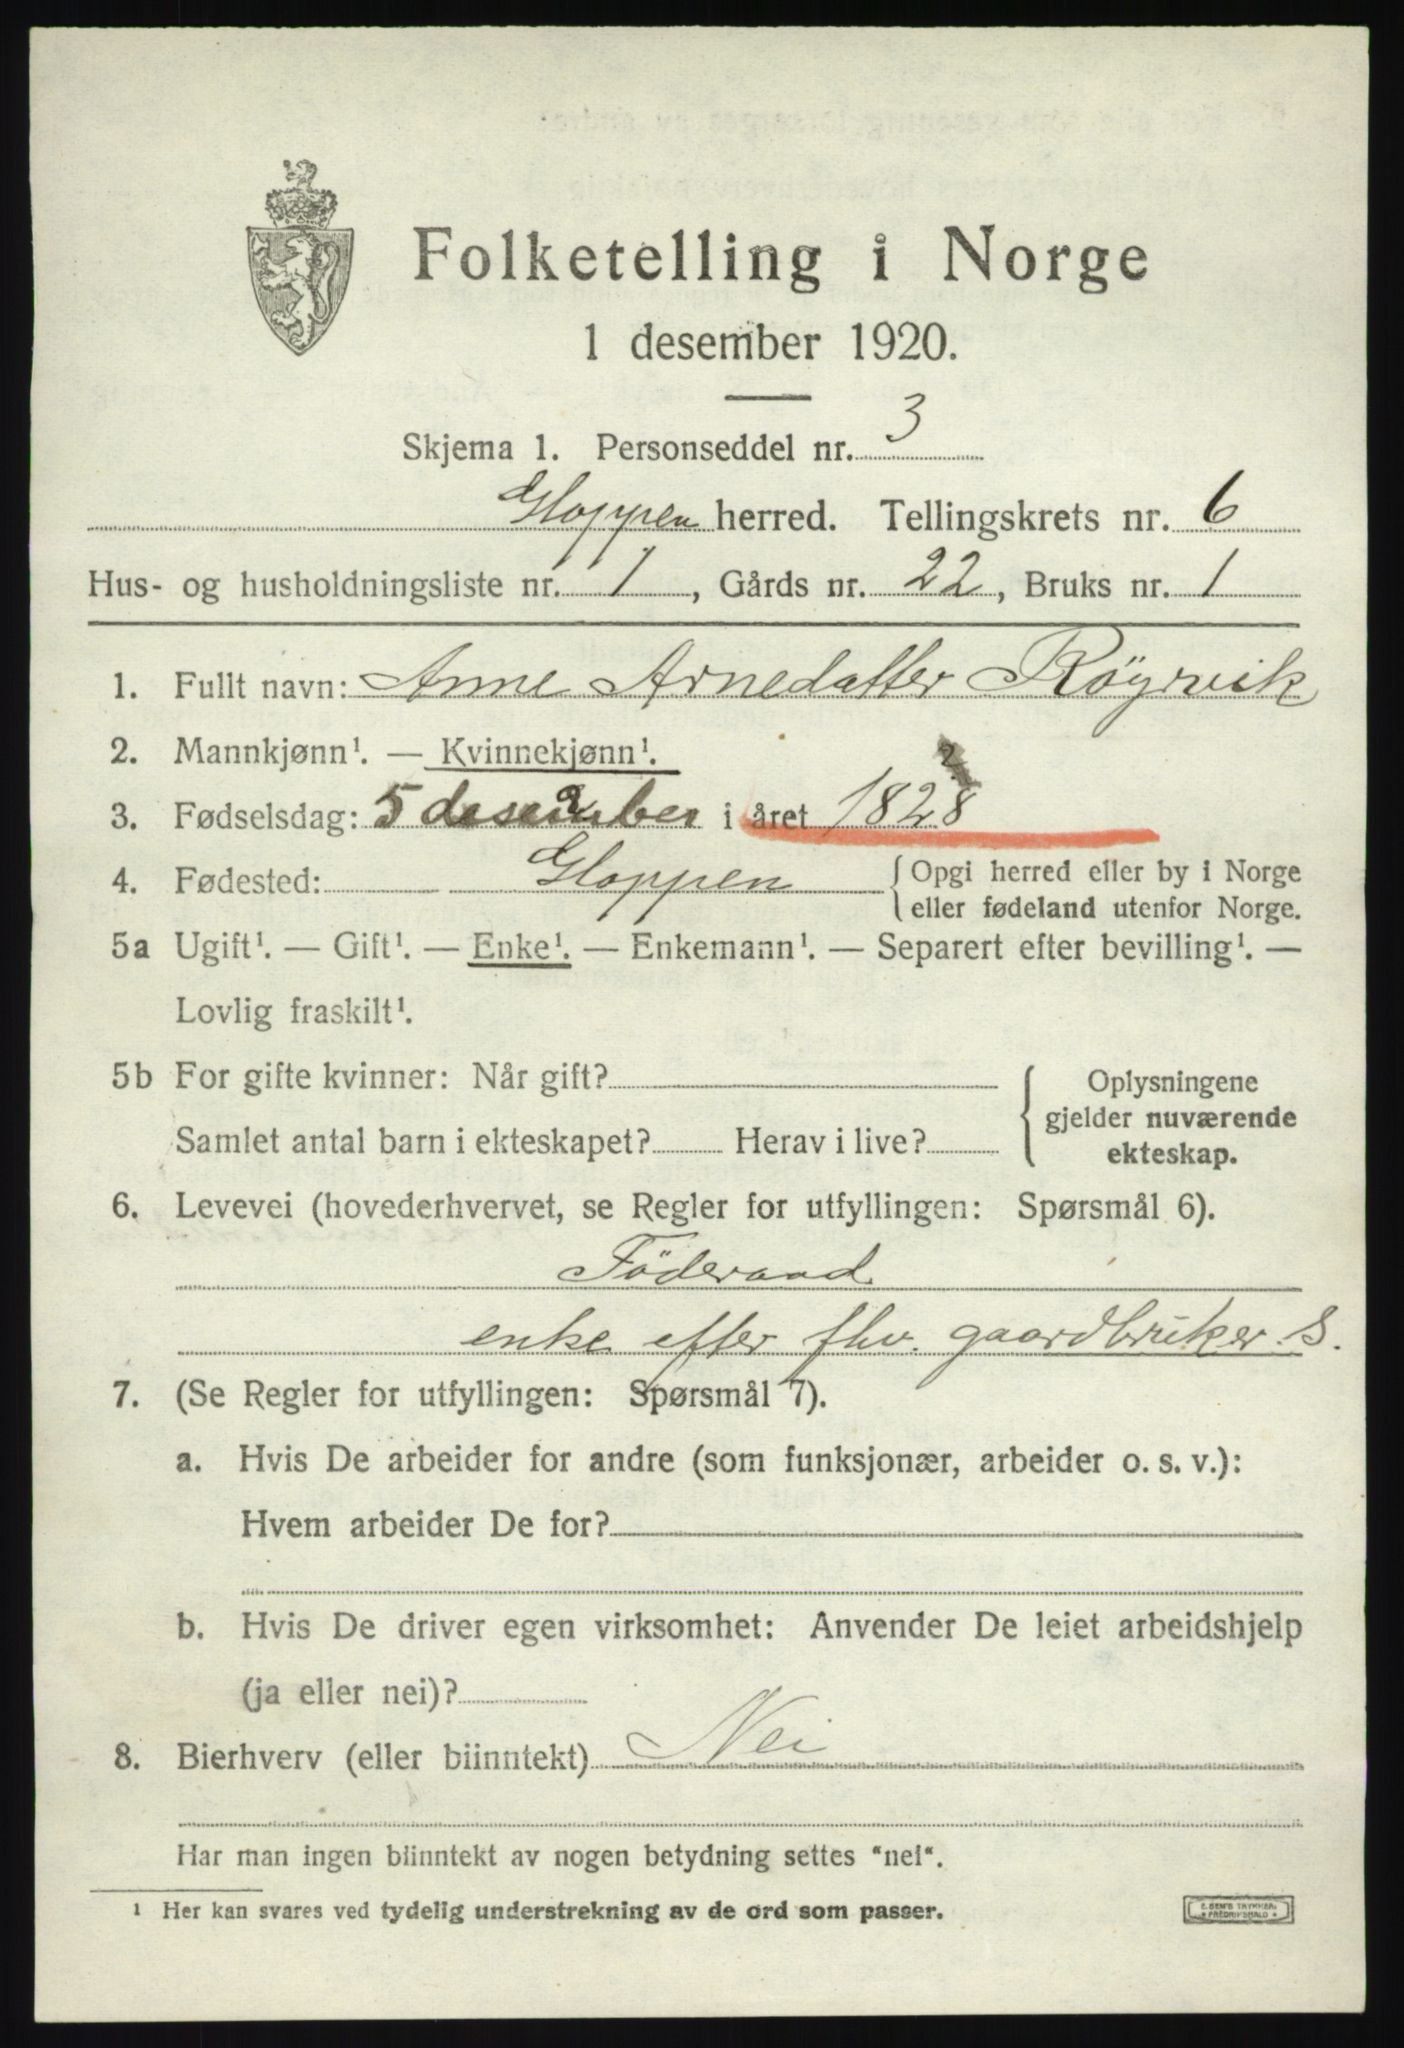 Folketelling i Norge
1 desember 1920.
Skjema 1. Personseddel nr. 3
Gloppen herred. Tellingskrets nr. 6
Hus- og husholdningsliste nr. 1, Gårds nr. 22, Bruks nr. 1
1. Fullt navn: Anne Arnedatter Röyrvik
2. Mannkjønn¹. — Kvinnekjønn¹.
3. Fødselsdag: 5 desember i året 1828
4. Fødested: Gloppen { Opgi herred eller by i Norge
eller fødeland utenfor Norge.
5a Ugift¹. — Gift¹. — Enke¹. — Enkemann¹. — Separert efter bevilling¹. —
Lovlig fraskilt¹.
5b For gifte kvinner: Når gift? { Oplysningene
gjelder nuværende
Samlet antal barn i ekteskapet? Herav i live?
ekteskap.
6. Levevei (hovederhvervet, se Regler for utfyllingen: Spørsmål 6).
Föderaad
enke efter fhv. gaardbruker. S.
7. (Se Regler for utfyllingen: Spørsmål 7).
a. Hvis De arbeider for andre (som funksjonær, arbeider o. s. v.):
Hvem arbeider De for?
b. Hvis De driver egen virksomhet: Anvender De leiet arbeidshjelp
(ja eller nei)?
8. Bierhverv (eller biinntekt) Nei
Har man ingen biinntekt av nogen betydning settes "nei".
¹ Her kan svares ved tydelig understrekning av de ord som passer.